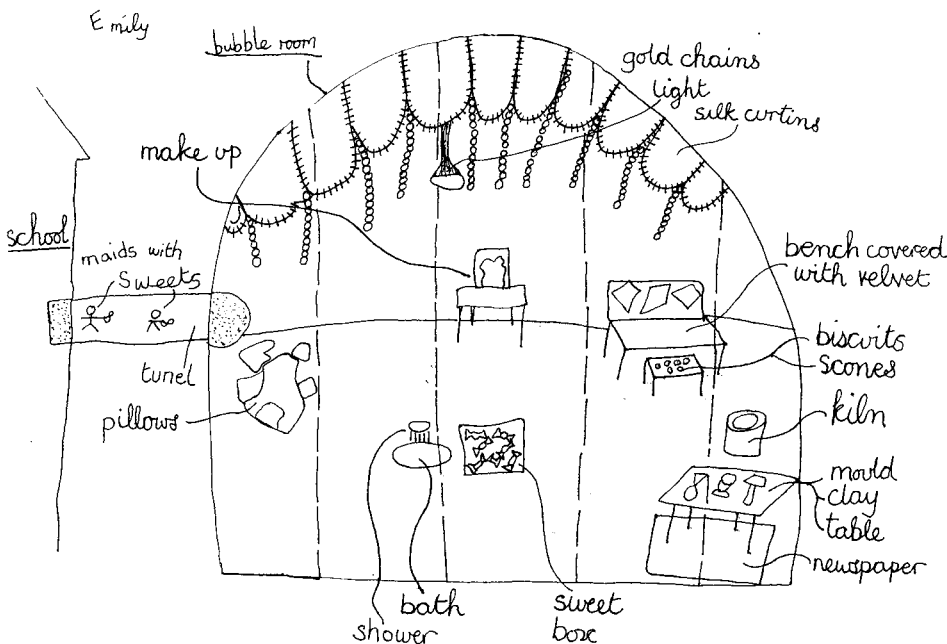 Emily
bubble room
gold chains
light
silk curtins
make up
school
maids with
sweets
bench covered
with velvet
biscuits
scones
tunel
pillows
kiln
mould
clay
table
newspaper
bath
shower
sweet
box